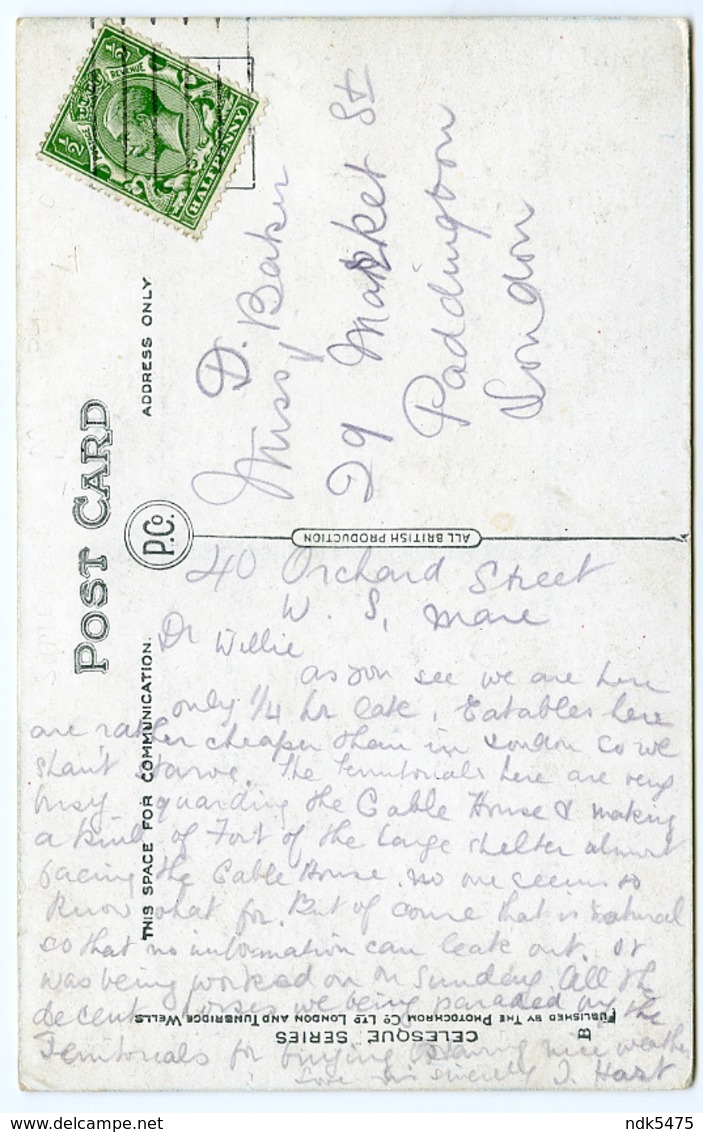 POST CARD
THIS SPACE FOR COMMUNICATION.
ADDRESS ONLY.
P.Co.
ALL BRITISH PRODUCTION
REVENUE
½ ½
HALFPENNY
Miss D. Baker
29 Market St
Paddington
London
40 Orchard Street
W. S. Mare
Dr Willie
as you see we are here
only 1/4 hr late. Eatables here
are rather cheaper than in London so we
shan't starve. The Territorials here are very
busy guarding the Cable House & making
a kind of Fort of the large shelter almost
facing the Cable House. no one seems to
know what for. But of course that is natural
so that no information can leak out. It
was being worked on on Sunday. All the
decent horses we being paraded by the
Territorials for buying Having nice weather
Love sincerely J. Hast
CELESQUE SERIES
PUBLISHED BY THE PHOTOCHROM CO LTD LONDON AND TUNBRIDGE WELLS
B
delcampe.net
ndk5475